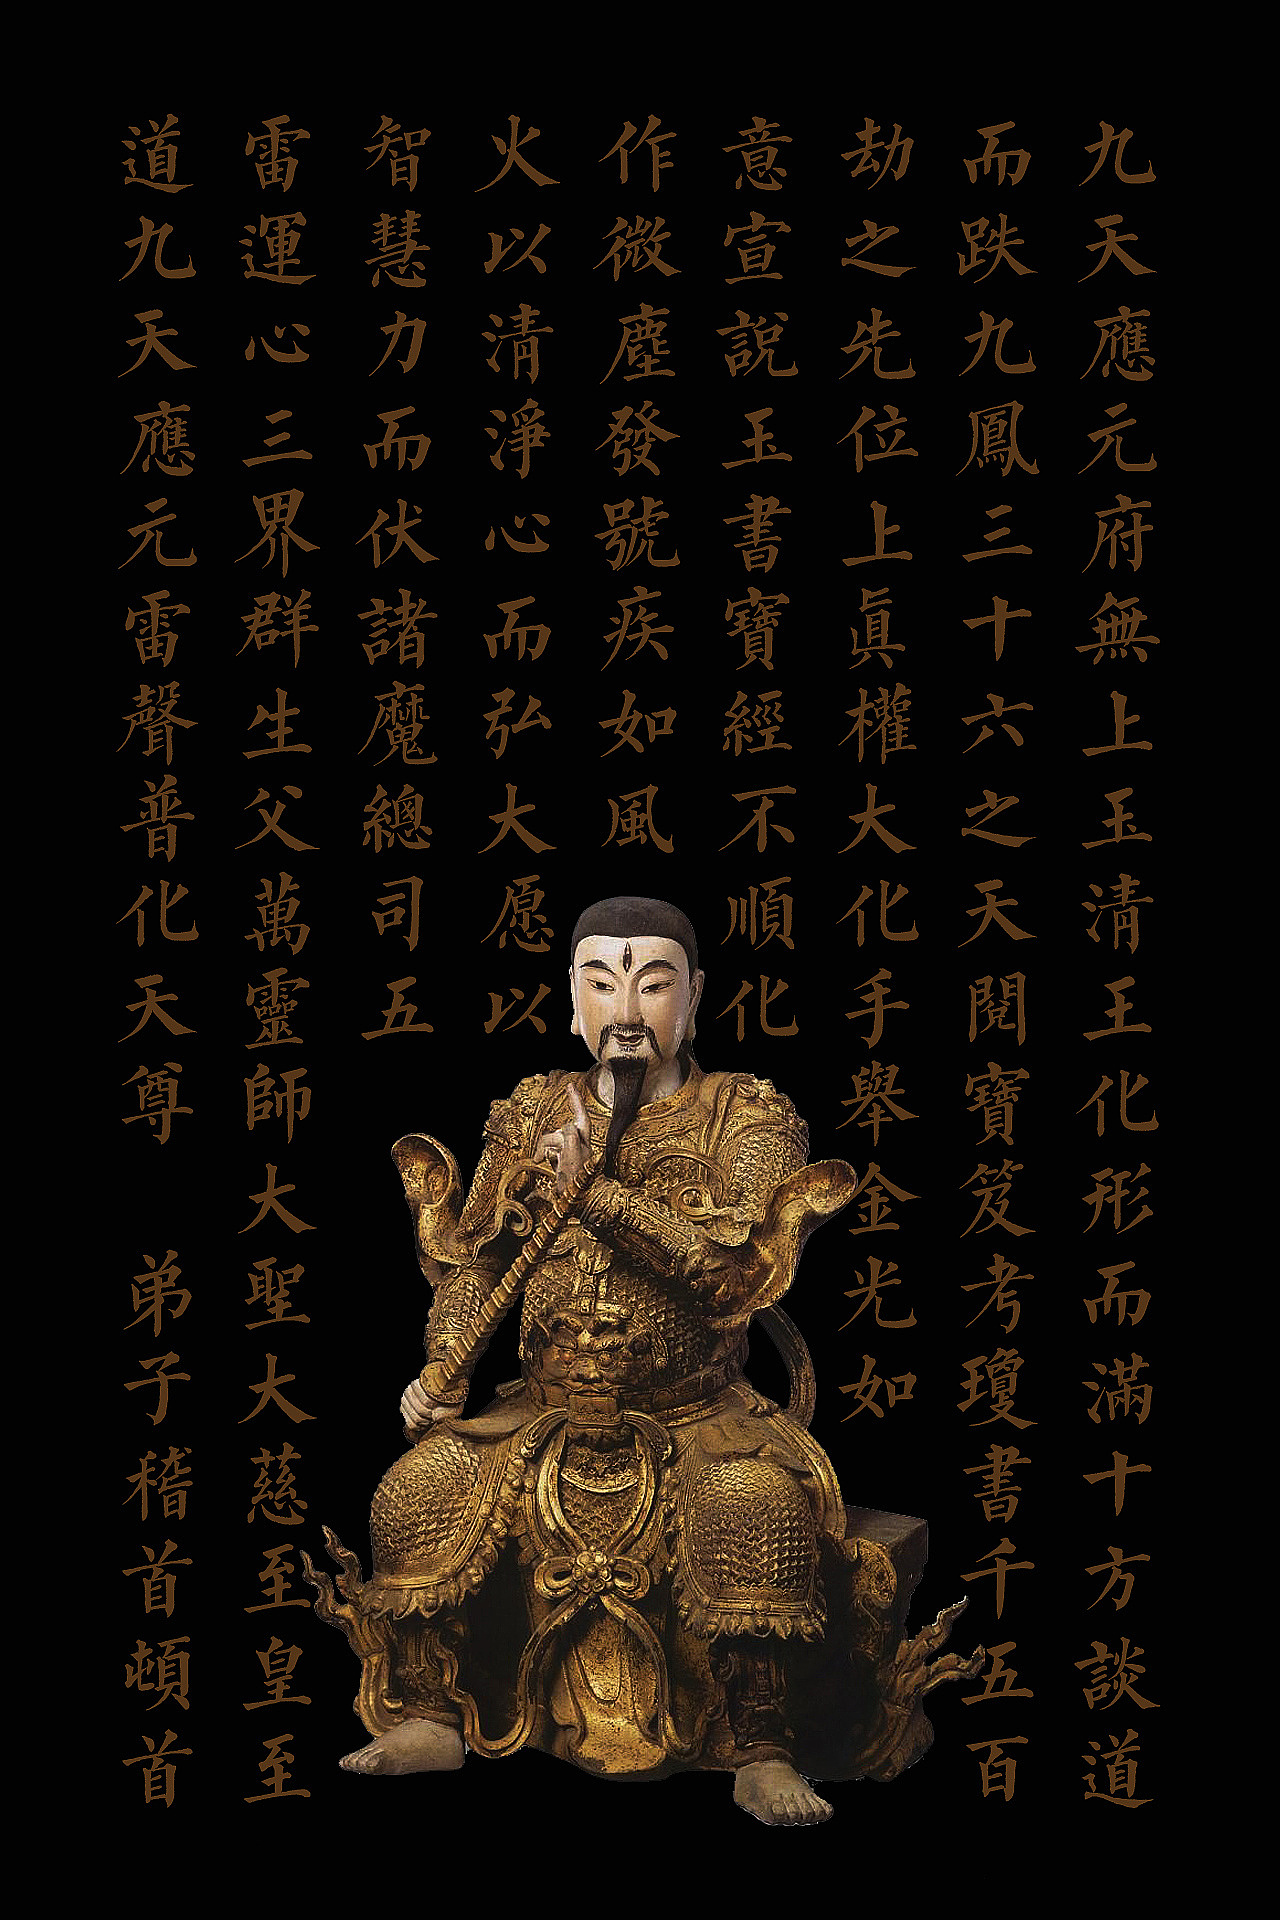 九天應元府無上玉清王化形而滿十方談道
而趺九鳳三十六之天閱寶笈考瓊書千五百
劫之先位上眞權大化手舉金光如
意宣說玉書寶經不順化
作微塵發號疾如風
火以清淨心而弘大愿以
智慧力而伏諸魔總司五
雷運心三界群生父萬靈師大聖大慈至皇至
道九天應元雷聲普化天尊　弟子稽首頓首